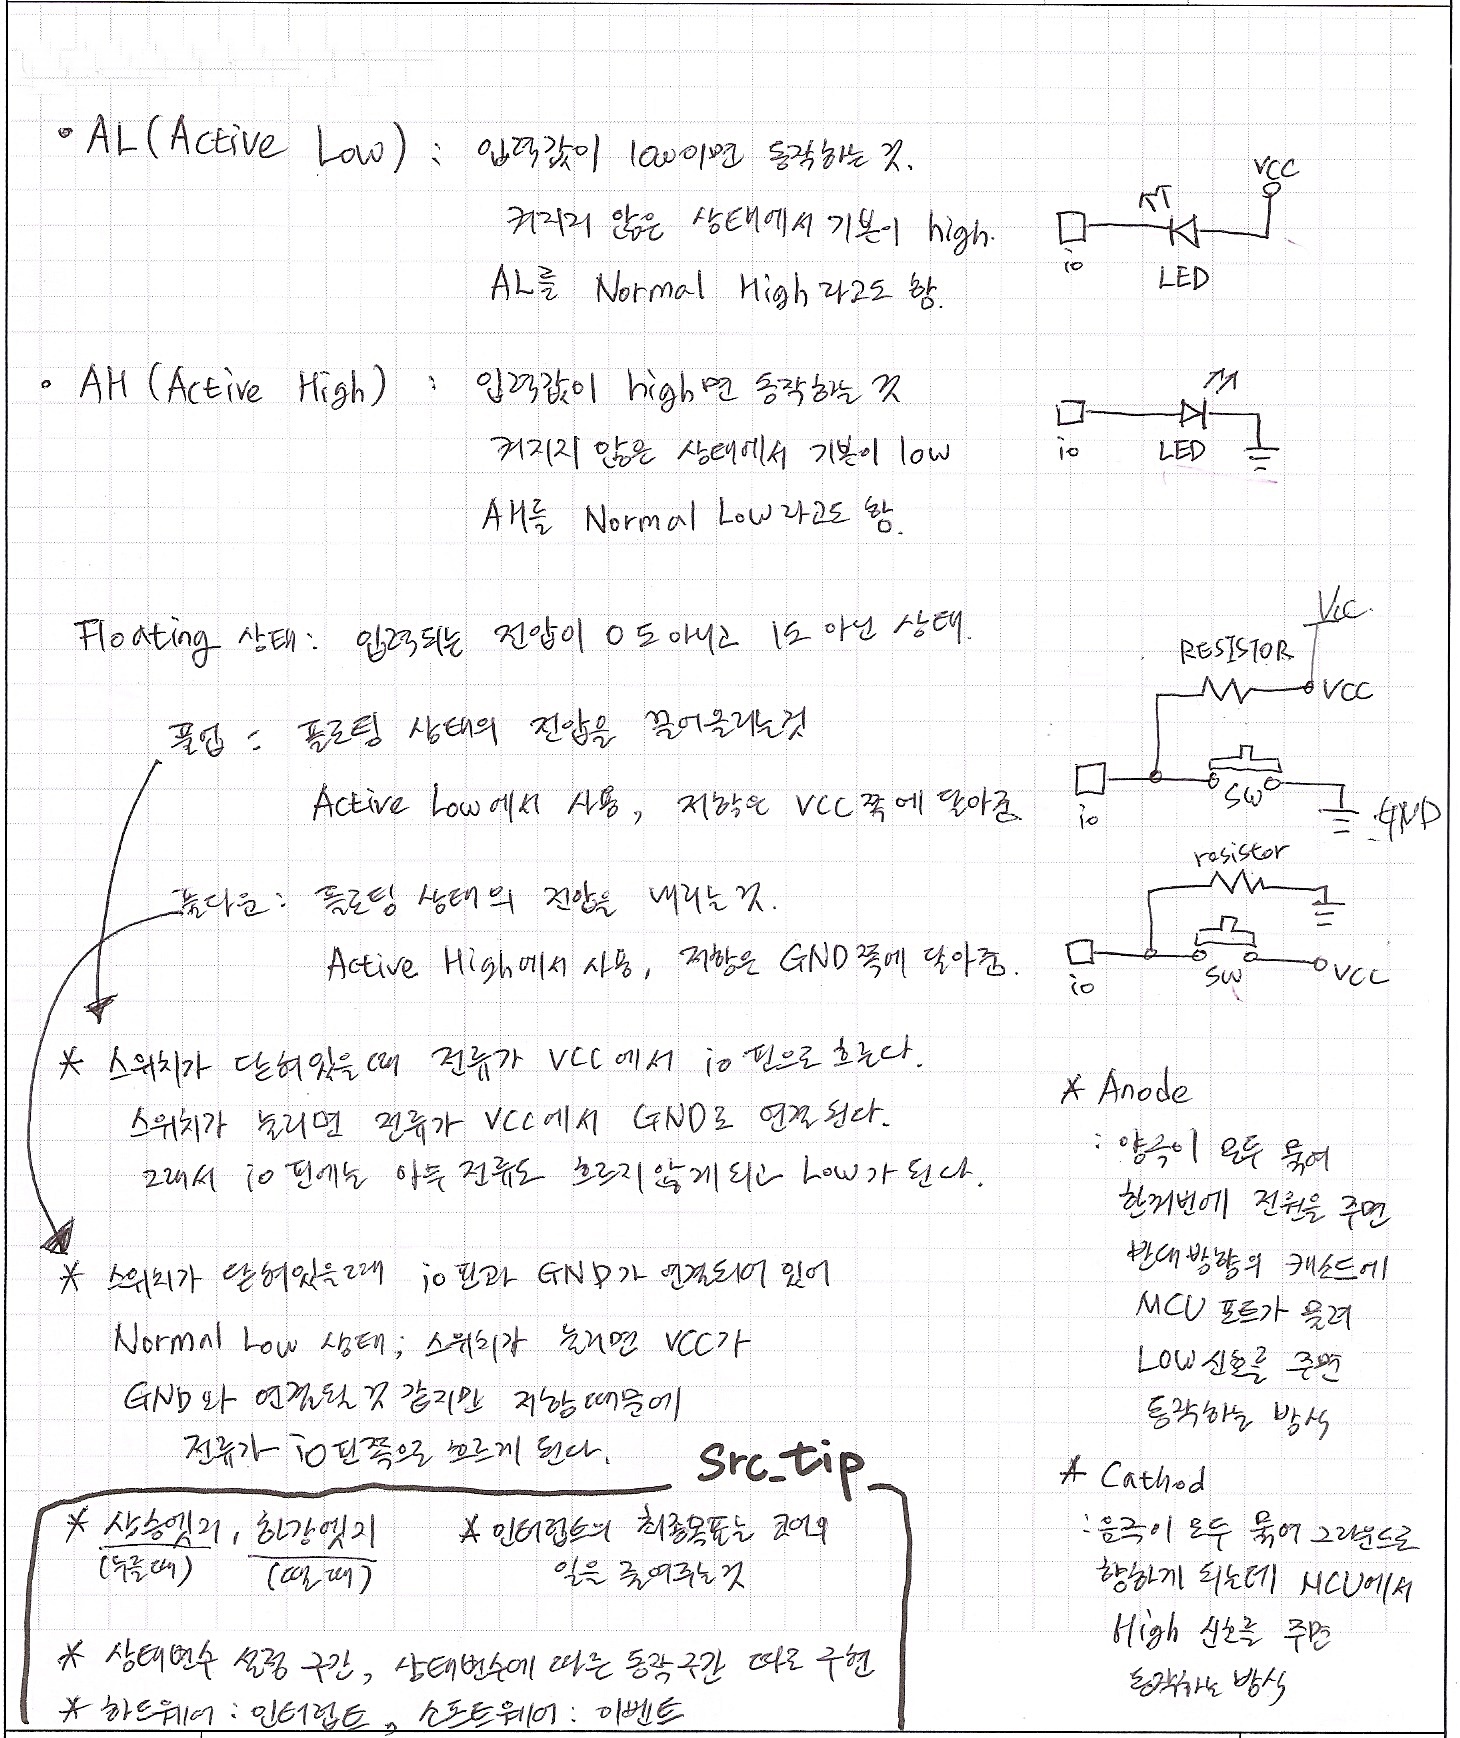 • AL (Active Low) : 입력값이 low이면 동작하는 것.
켜지지 않은 상태에서 기본이 high.
AL를 Normal High라고도 함.
VCC
io
LED
• AH (Active High) : 입력값이 high면 동작하는 것
켜지지 않은 상태에서 기본이 low
AH를 Normal Low라고도 함.
io
LED
Floating 상태: 입력되는 전압이 0도 아니고 1도 아닌 상태.
풀업 : 플로팅 상태의 전압을 끌어올리는것
Active Low에서 사용, 저항은 VCC쪽에 달아줌
VCC.
RESISTOR
VCC
io
SW
GND
풀다운: 플로팅 상태의 전압을 내리는 것.
Active High에서 사용, 저항은 GND쪽에 달아줌.
resistor
io
SW
VCC
* 스위치가 닫혀있을때 전류가 VCC에서 io핀으로 흐른다.
스위치가 눌리면 전류가 VCC에서 GND로 연결된다.
그래서 io핀에는 아무 전류도 흐르지 않게되고 Low가 된다.
* 스위치가 닫혀있을때 io핀과 GND가 연결되어 있어
Normal Low 상태; 스위치가 눌리면 VCC가
GND와 연결될 것 같지만 저항때문에
전류가 io핀쪽으로 흐르게 된다.
* Anode
: 양극이 모두 묶여
한꺼번에 전원을 주면
반대방향의 캐소드에
MCU 포트가 물려
LOW신호를 주면
동작하는 방식
* Cathod
: 음극이 모두 묶여 그라운드로
향하게 되는데 MCU에서
High 신호를 주면
동작하는 방식
Src_tip
* 상승엣지, 하강엣지
(누를때) (뗄때)
* 인터럽트의 최종목표는 코어의
일을 줄여주는것
* 상태변수 설정 구간, 상태변수에 따른 동작구간 따로 구현
* 하드웨어 : 인터럽트, 소프트웨어 : 이벤트